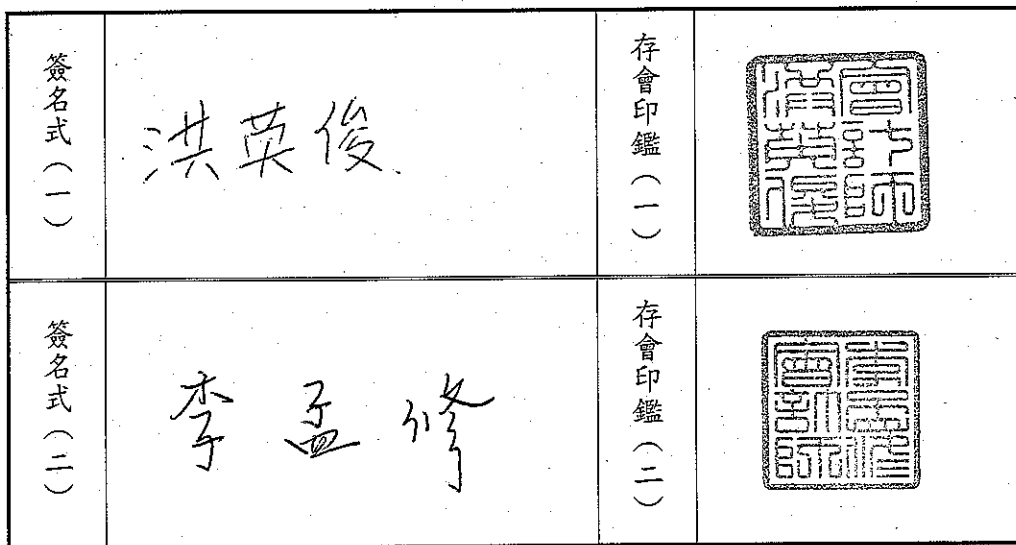 簽名式（一）
洪英俊
存會印鑑（一）
會計師
洪英俊
簽名式（二）
李孟修
存會印鑑（二）
李孟修
會計師